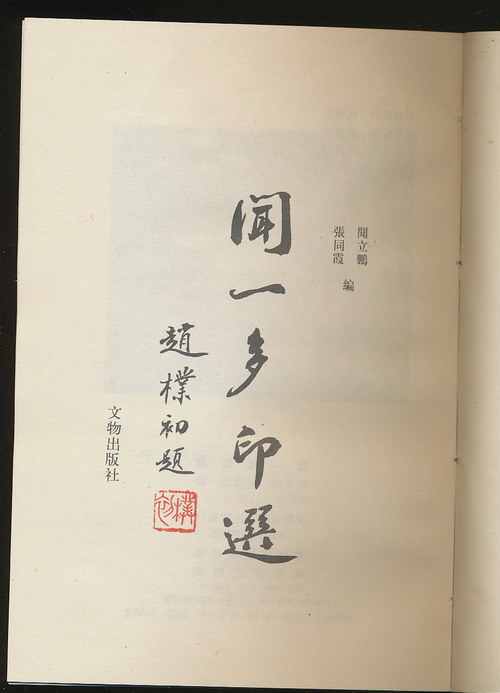 聞立鵬
張同霞
編
聞一多印選
趙樸初題
樸初
文物出版社